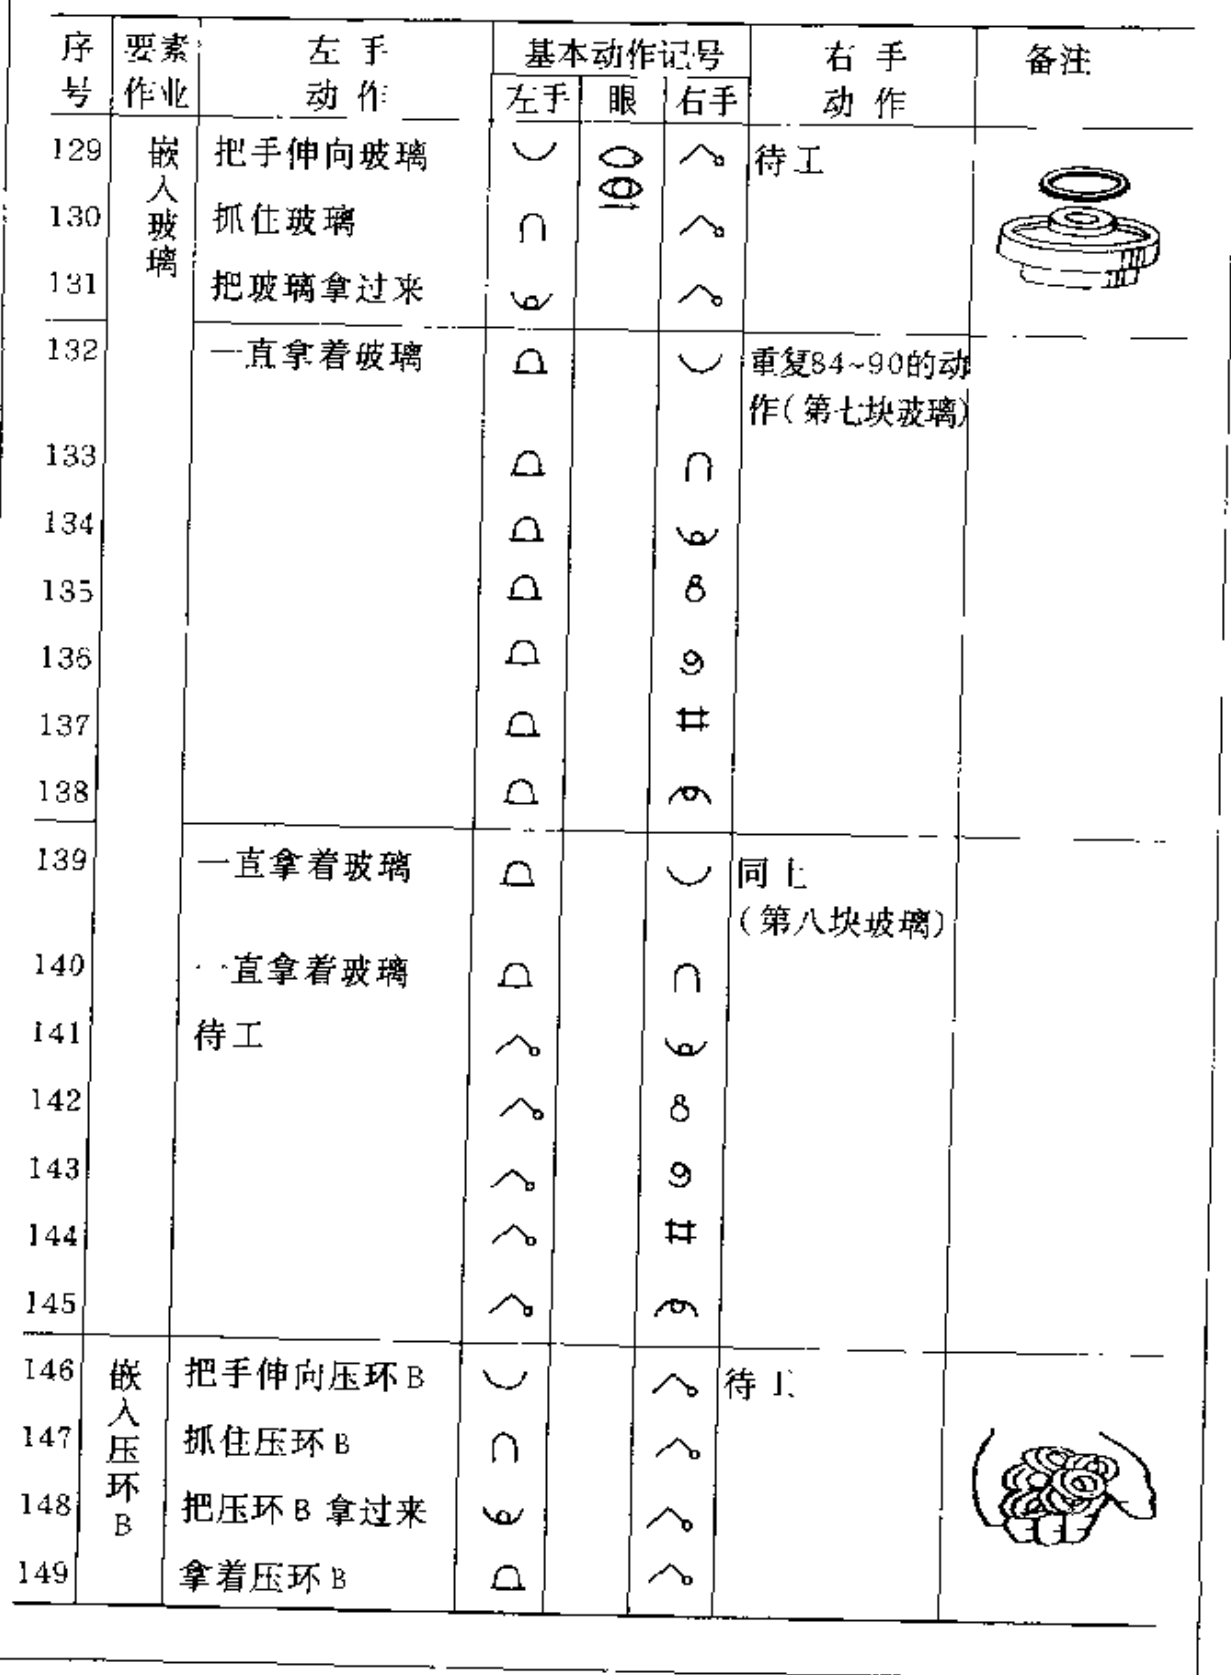 序号 要素作业 左手动作 基本动作记号 右手动作 备注
左手 眼 右手
嵌入玻璃
129 把手伸向玻璃 待工
130 抓住玻璃
131 把玻璃拿过来
132 一直拿着玻璃 重复84~90的动
作(第七块玻璃)
133
134
135
136
137
138
139 一直拿着玻璃 同上
(第八块玻璃)
140 一直拿着玻璃
141 待工
142
143
144
145
嵌入压环B
146 把手伸向压环B 待工
147 抓住压环B
148 把压环B拿过来
149 拿着压环B